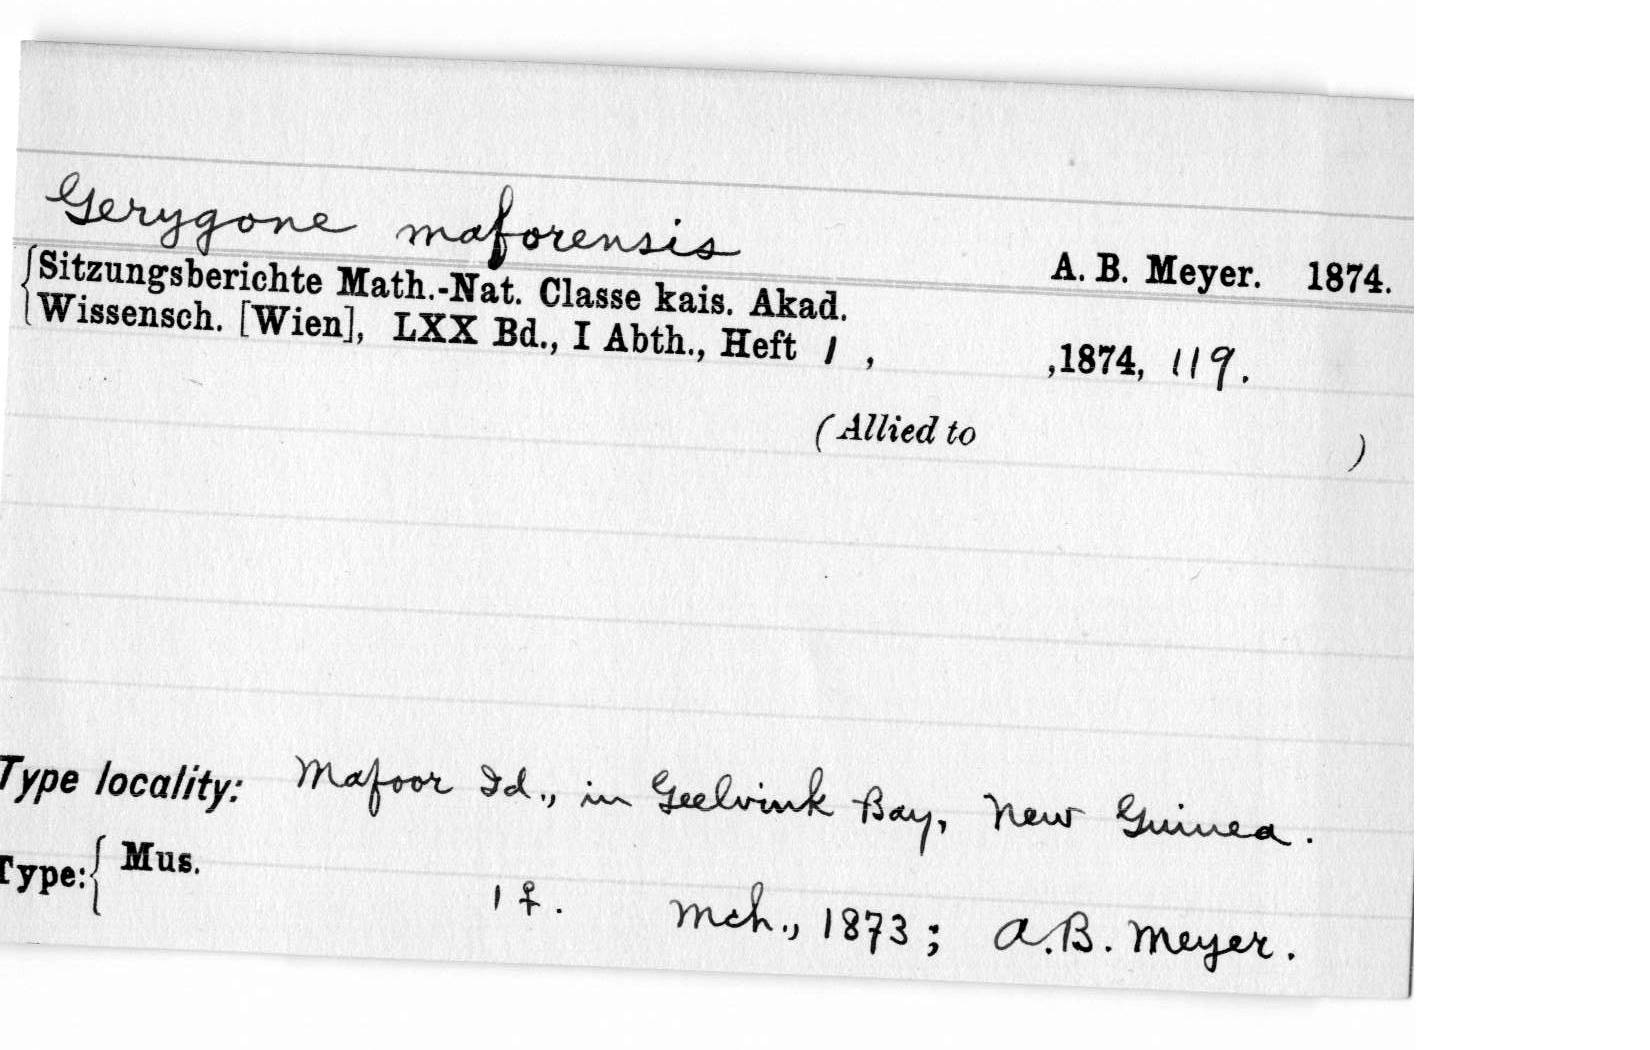 Gerygone maforensis
A. B. Meyer. 1874.
{Sitzungsberichte Math.-Nat. Classe kais. Akad.
Wissensch. [Wien], LXX Bd., I Abth., Heft 1 , ,1874, 119.
(Allied to )
Type locality: Mafoor Id., in Geelvink Bay, New Guinea.
Type:{ Mus.
1 ♀. Mch., 1873; A.B. Meyer.